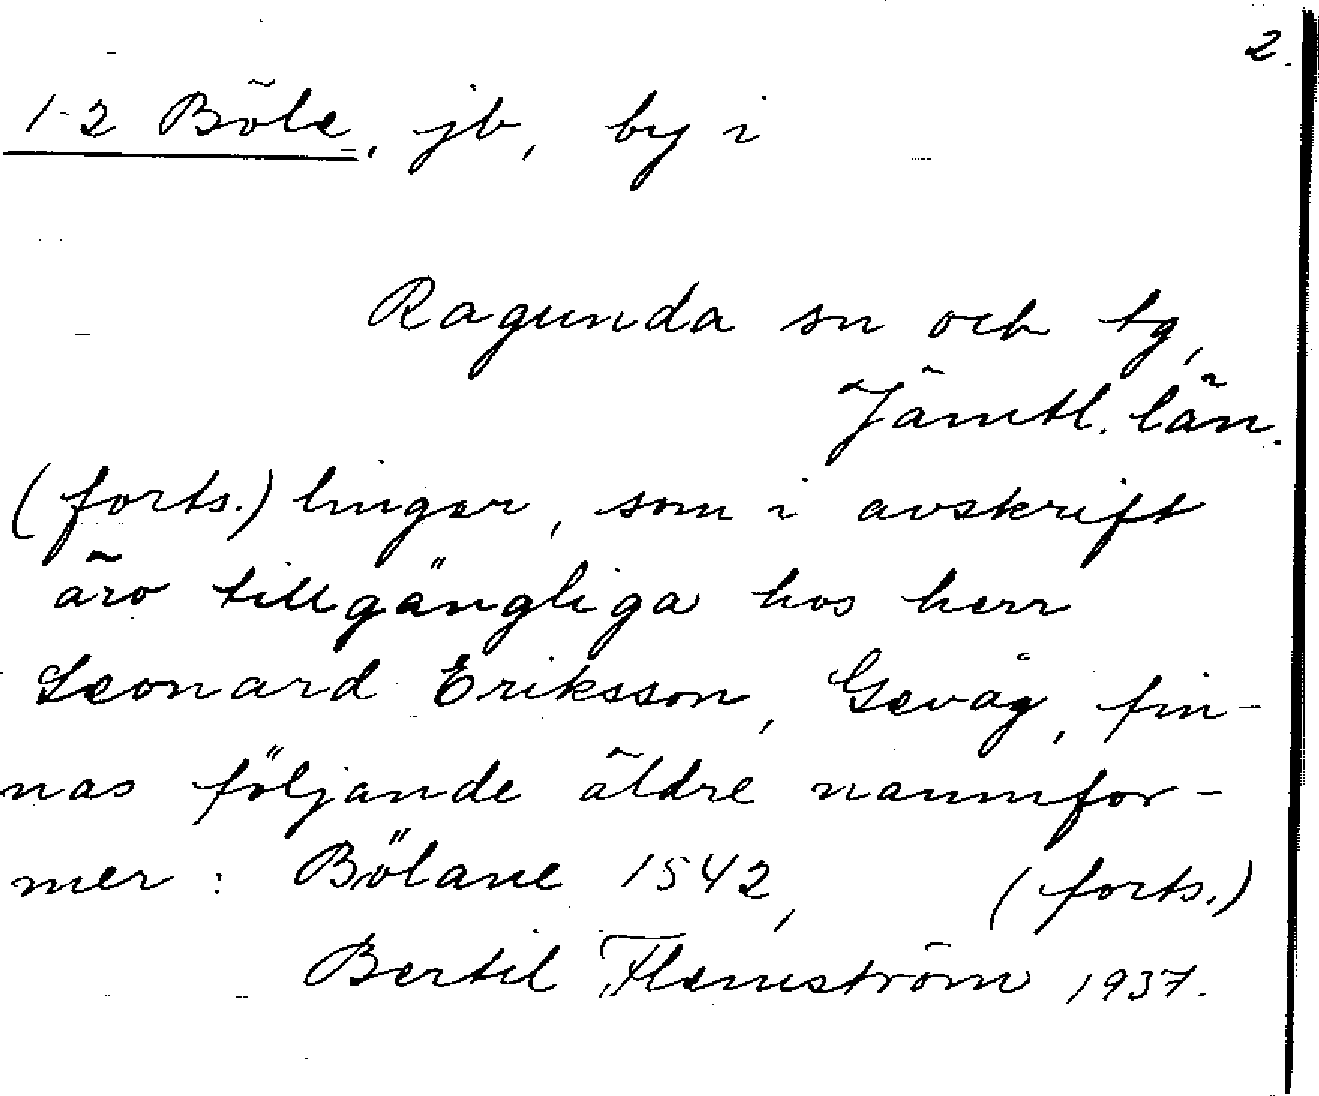 2.
1-2 Böle, jb, by i
Ragunda sn och tg,
Jämtl. län.
(forts.) lingar, som i avskrift
äro tillgängliga hos herr
Leonard Eriksson, Gevåg, fin-
nas följande äldre namnfor-
mer: Bölane 1542, (forts.)
Bertil Flemström 1937.